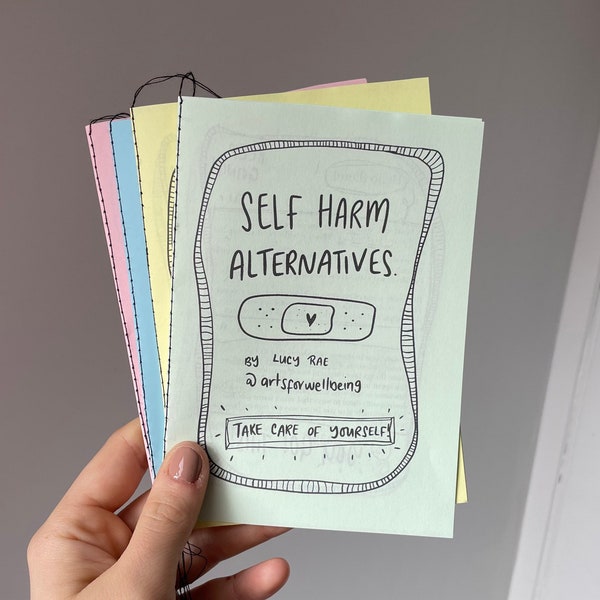 SELF HARM
ALTERNATIVES.
BY LUCY RAE
@artsforwellbeing
TAKE CARE OF YOURSELF!